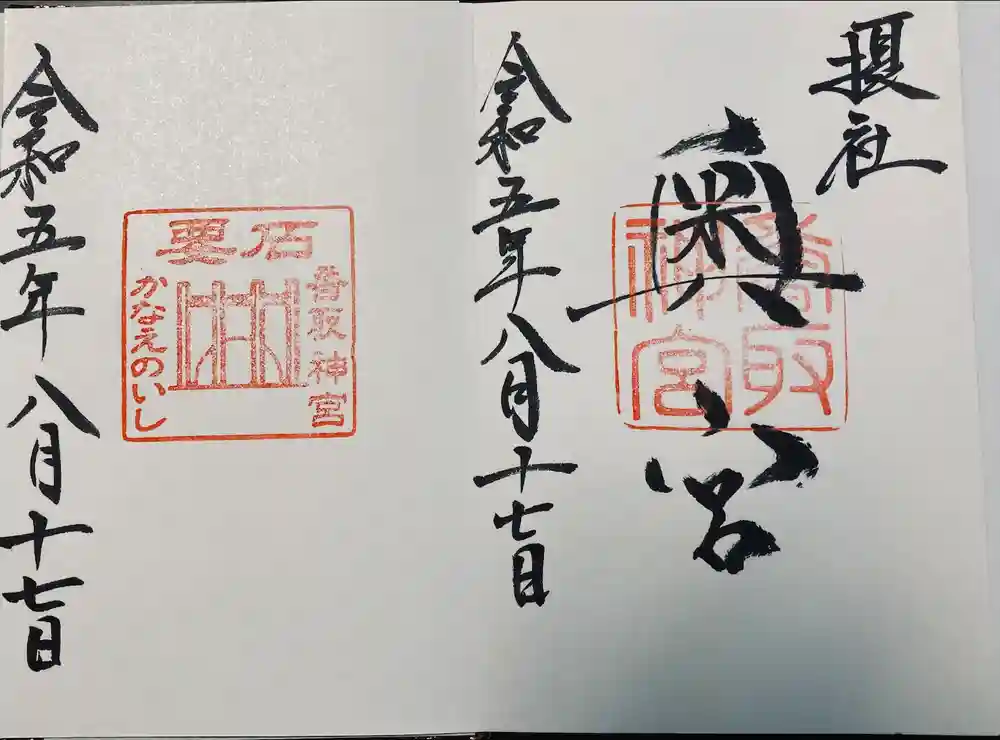 摂社
奥宮
香取
神宮
令和五年八月十七日
石要
香取神宮
かなえのいし
令和五年八月十七日